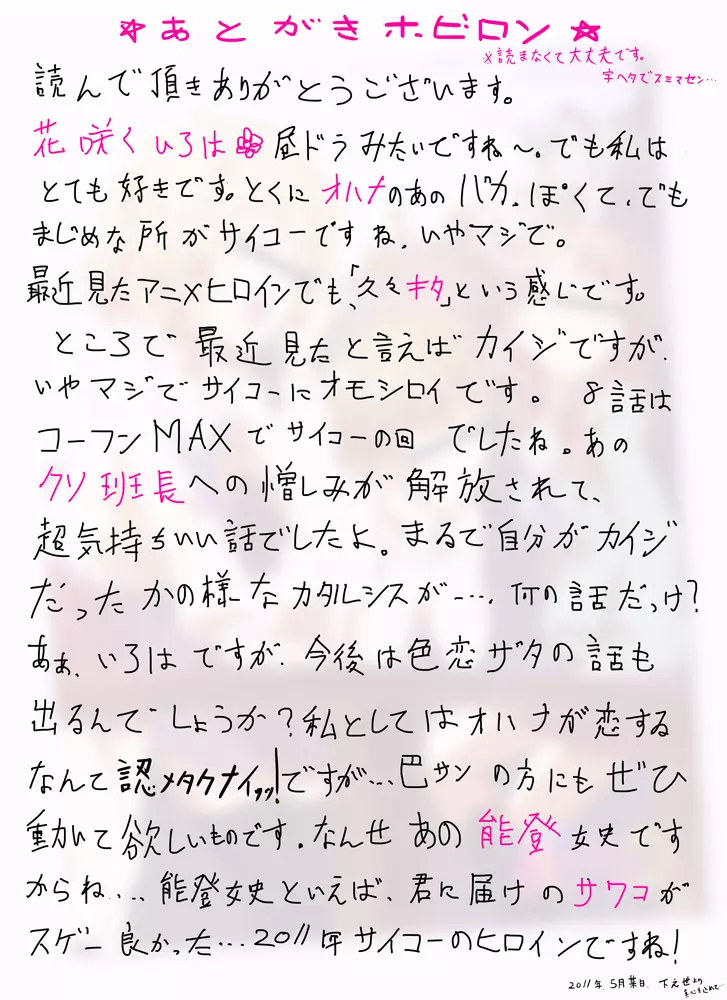 ☆あとがきホビロン☆
※読まなくて大丈夫です。
字ヘタでスミマセン…
読んで頂きありがとうございます。
花咲くいろは 昼ドラみたいですね〜。でも私は
とても好きです。とくにオハナのあのバカっぽくて、でも
まじめな所がサイコーですね、いやマジで。
最近見たアニメヒロインでも、「久々キタ」という感じです。
ところで最近見たと言えばカイジですが、
いやマジでサイコーにオモシロイです。 8話は
コーフンMAXでサイコーの回でしたね。あの
クソ班長への憎しみが解放されて、
超気持ちいい話でしたよ。まるで自分がカイジ
だったかの様なカタルシスが……、何の話だっけ?
あぁ、いろはですが、今後は色恋ザタの話も
出るんでしょうか?私としてはオハナが恋する
なんて認メタクナイッッ!ですが…巴サンの方にもぜひ
動いて欲しいものです。なんせあの能登女史です
からね…、能登女史といえば、君に届けのサワコが
スゲー良かった…2011年サイコーのヒロインですね!
2011年 5月某日、